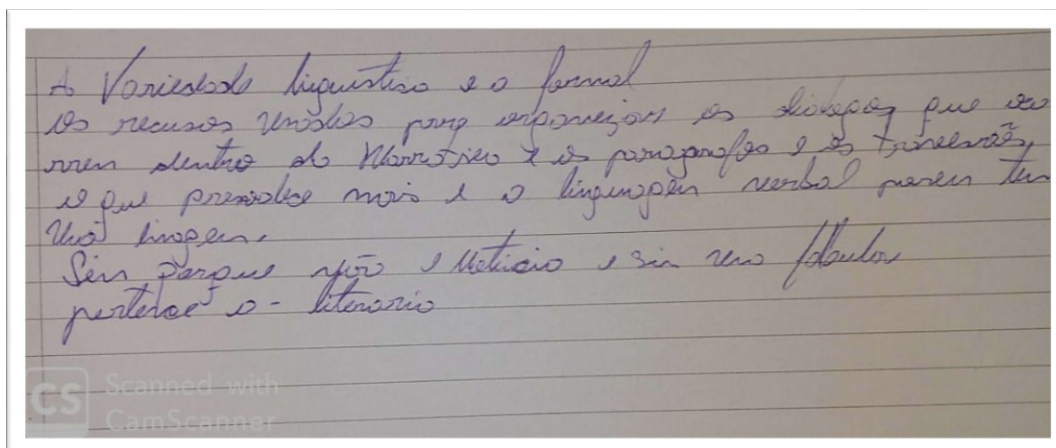 A Variedade linguistica e a formal
os recursos usados para organizar os dialogos que oco
rrem dentro da Narrativa e os paragrafos e os travessões,
o que prevalece mais e a linguagem verbal porem tem
uma imagem.
Sim porque não e noticia e sim uma fabula
pertence a - literario
CS Scanned with
CamScanner